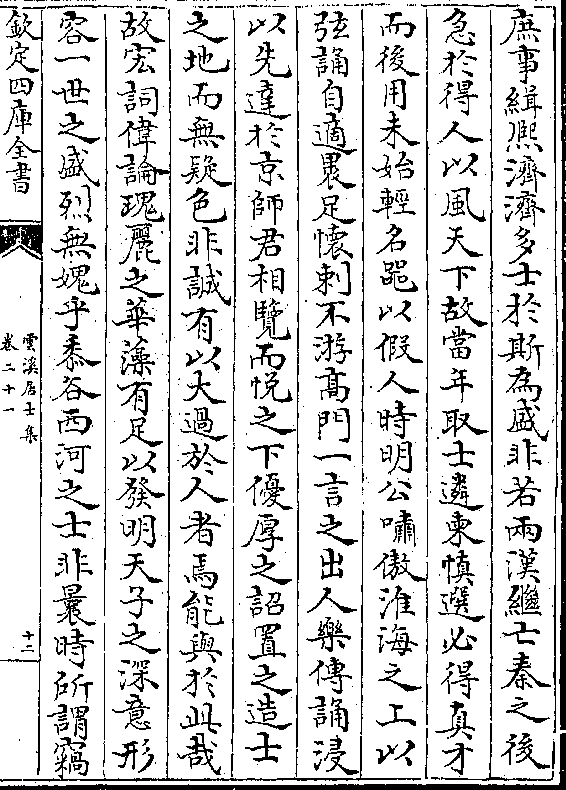 庶事緝熈濟濟多士於斯為盛非若兩漢繼亡秦之後
急於得人以風天下故當年取士遴柬慎選必得真才
而後用未始輕名器以假人時明公嘯傲淮海之上以
弦誦自適褁足懷刺不游髙門一言之出人樂傳誦浸
以先達於京師君相覽而悦之下優厚之詔置之造士
之地而無疑色非誠有以大過於人者焉能與於此哉
故宏詞偉論瑰麗之華藻有足以發明天子之深意形
容一世之盛烈無媿乎忝谷西河之士非曩時所謂竊
欽定四庫全書
雲溪居士集
卷二十一
十二